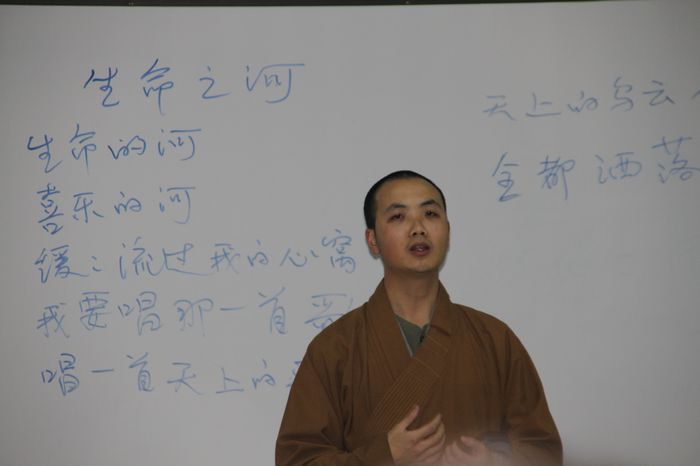 生命之河
生命的河
喜乐的河
缓缓流过我的心窝
我要唱那一首
唱一首天上的
天上的乌云
全都洒落